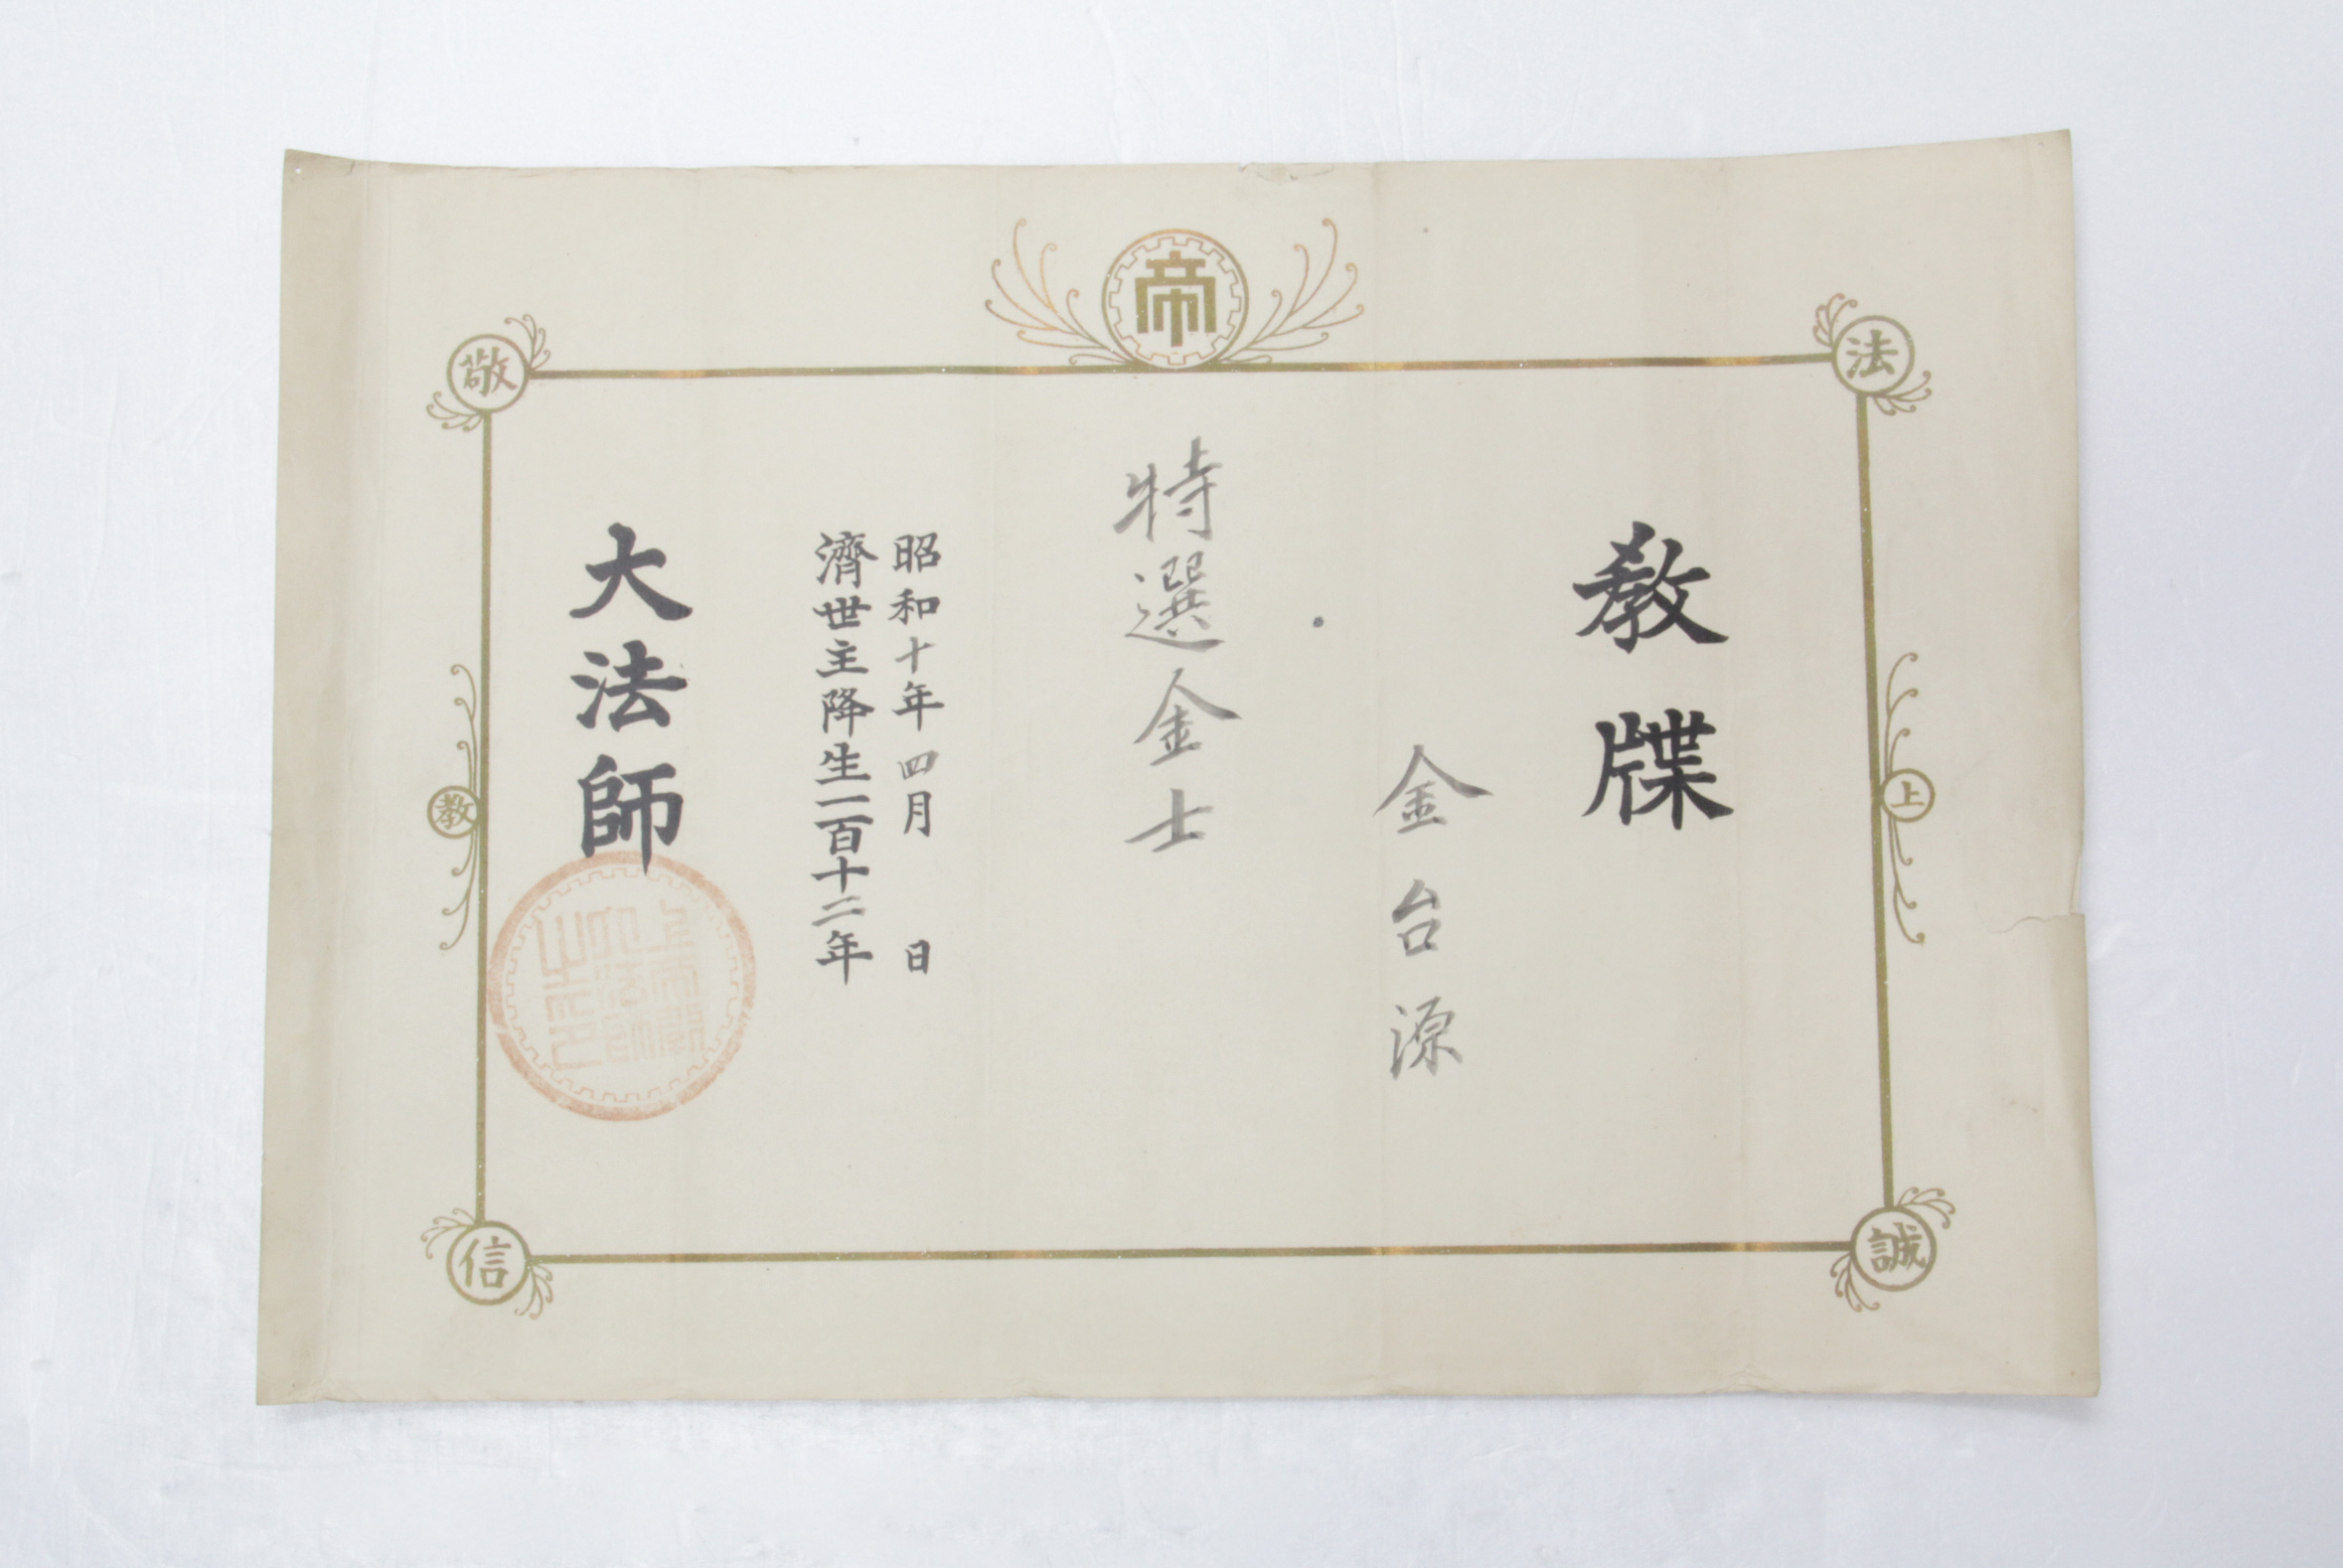 帝
法
敬
上
教
誠
信
教牒
金台源
特選金士
昭和十年四月 日
濟世主降生一百十二年
大法師
上帝敎大法師之印